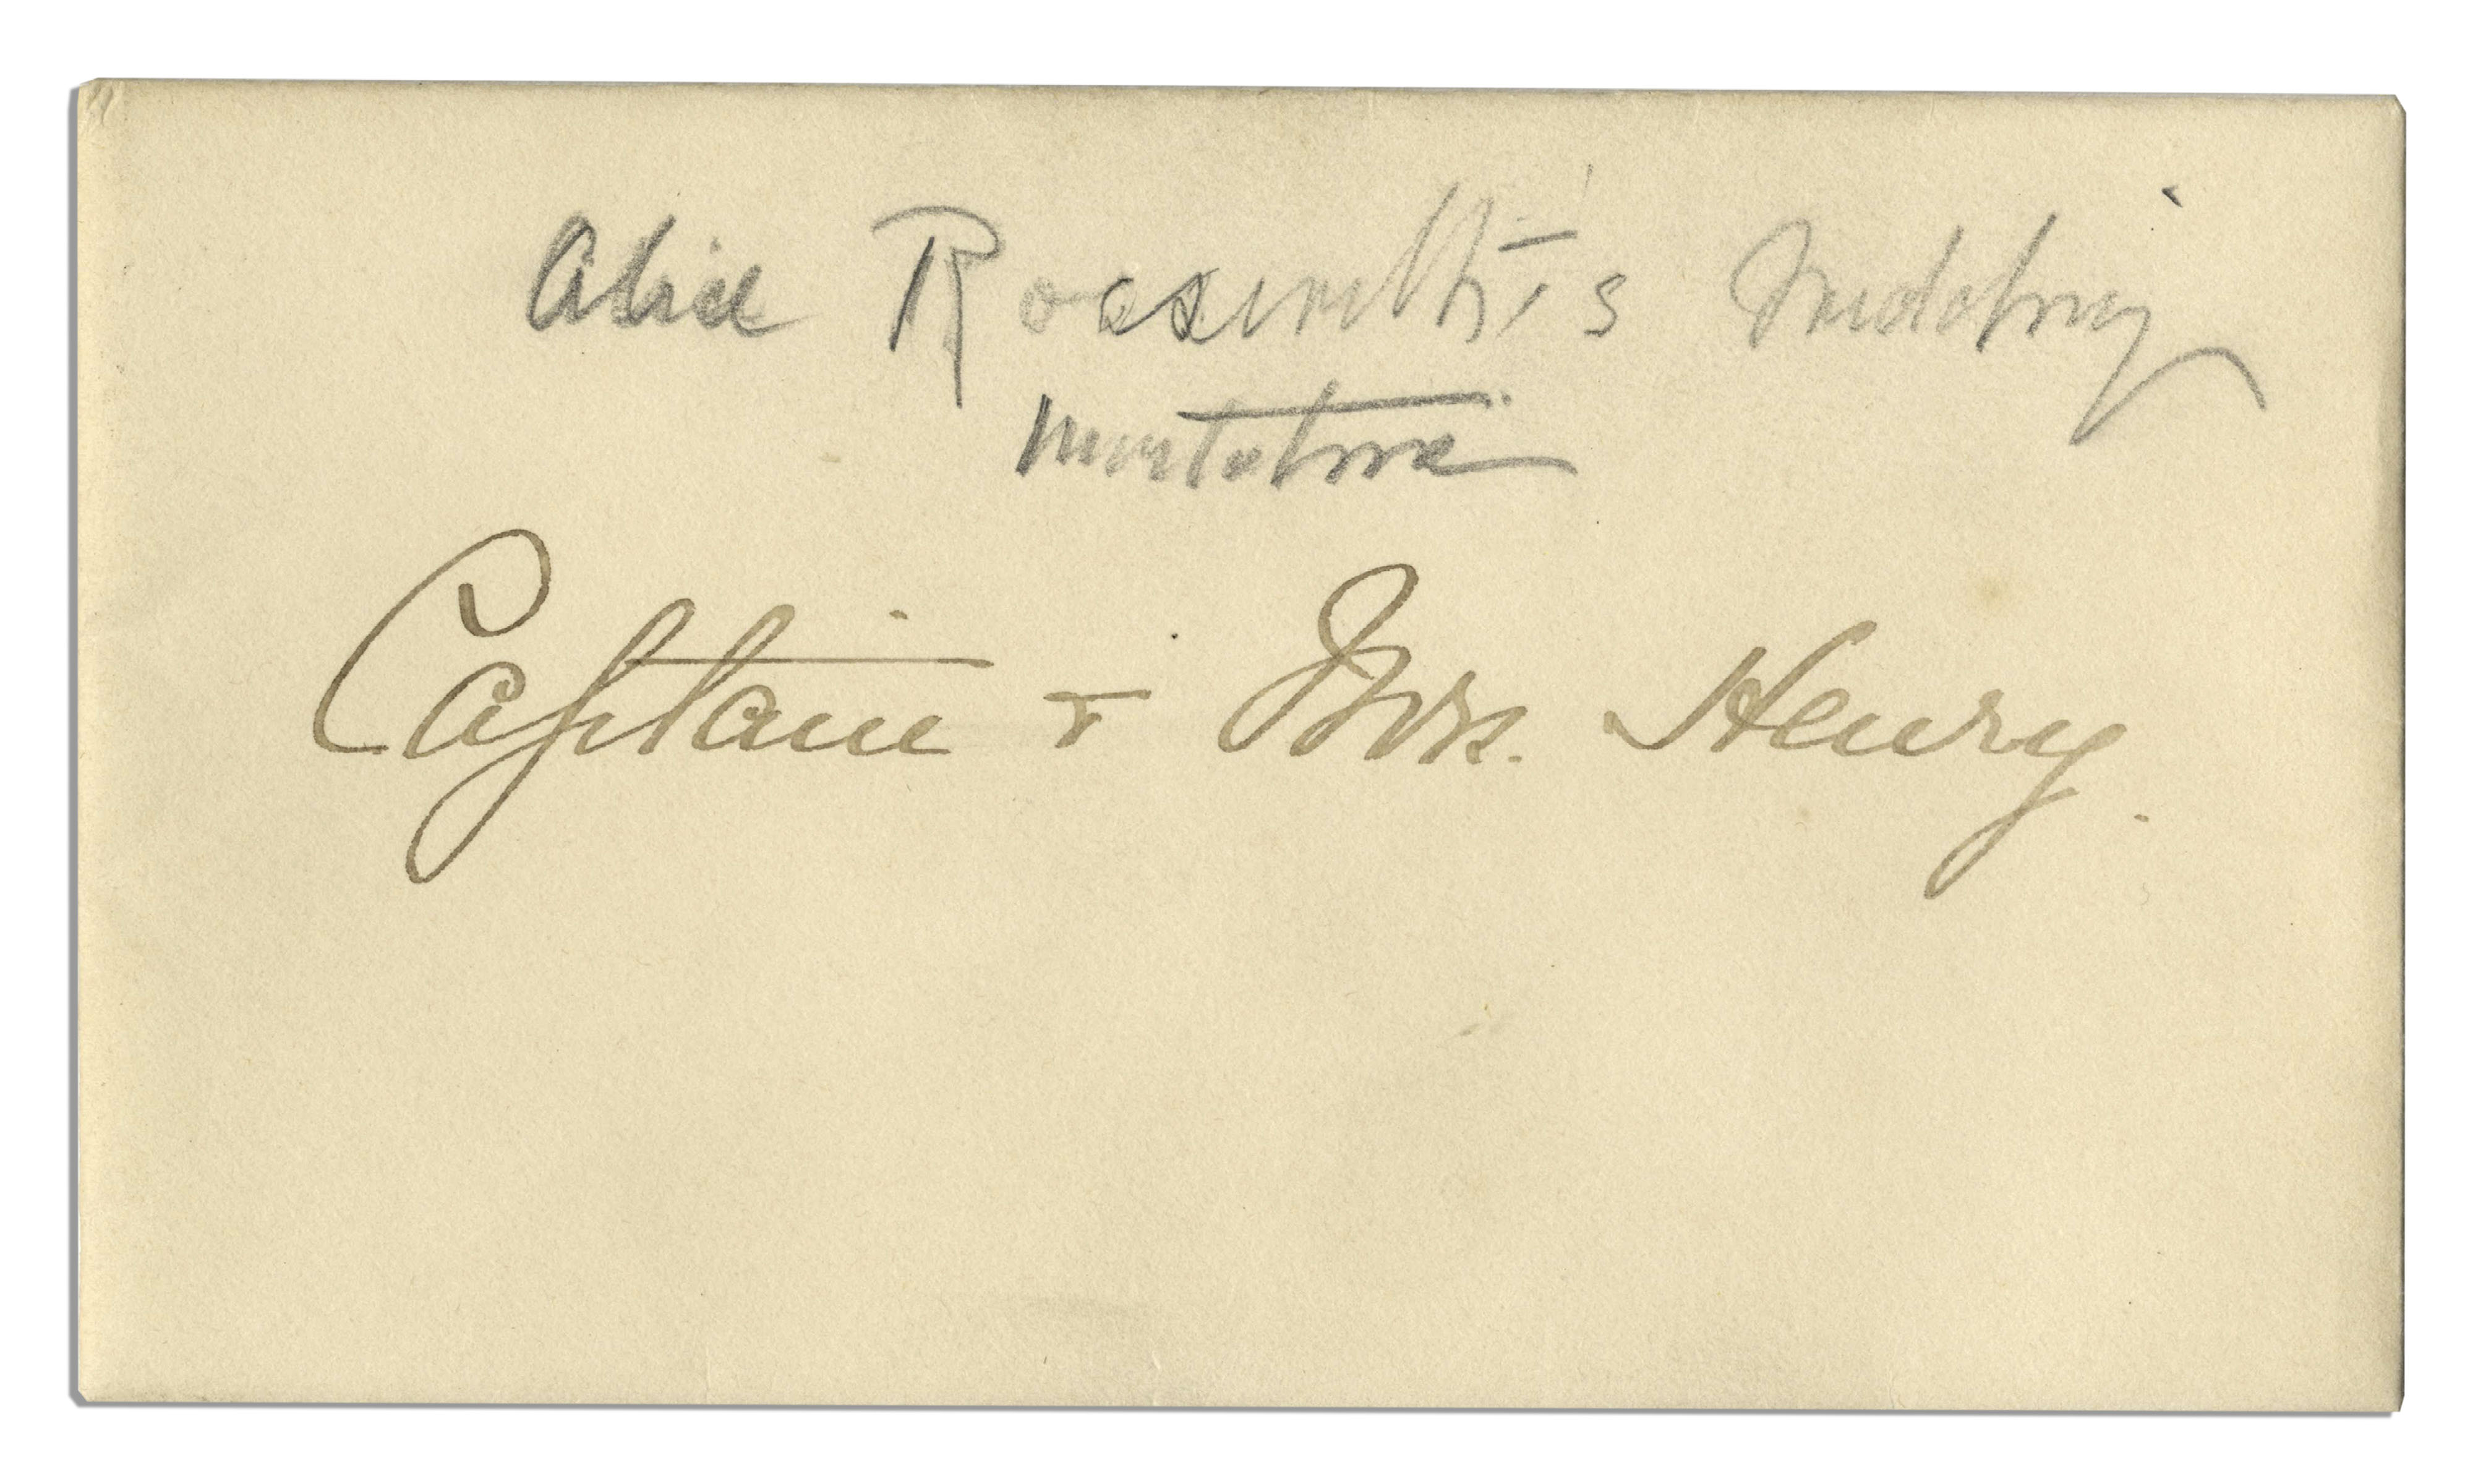 Alice Roosevelt's Wedding
Invitation
Captain & Mrs. Henry.